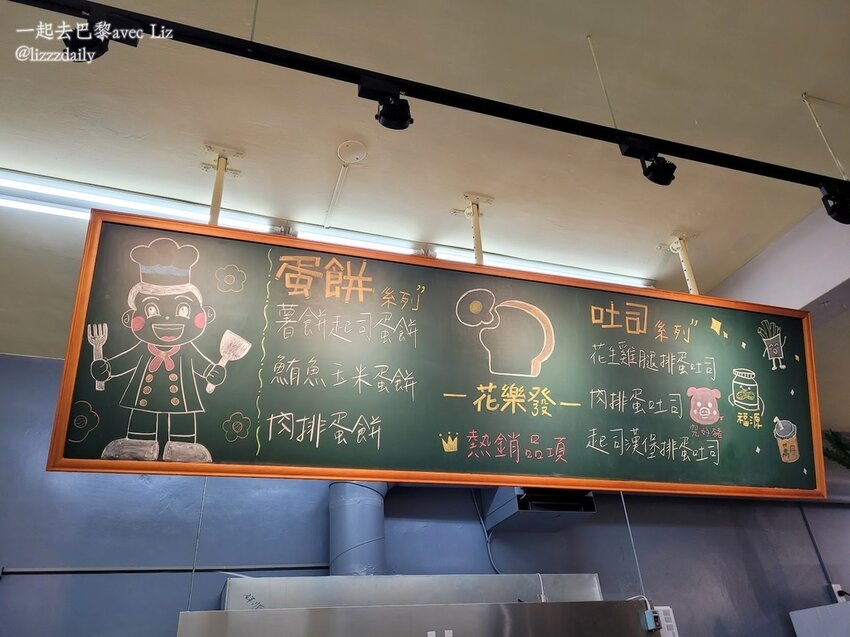 一起去巴黎avec Liz
@lizzzdaily
蛋餅系列"
薯餅起司蛋餅
鮪魚玉米蛋餅
肉排蛋餅
一花樂發一
熱銷品項
吐司系列"
花生雞腿排蛋吐司
肉排蛋吐司
起司漢堡排蛋吐司
福源